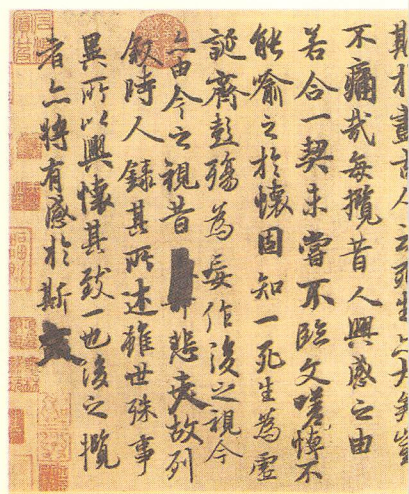 期於盡古人云死生亦大矣豈
不痛哉每攬昔人興感之由
若合一契未嘗不臨文嗟悼不
能喻之於懷固知一死生為虛
誕齊彭殤為妄作後之視今
亦由今之視昔悲夫故列
敘時人錄其所述雖世殊事
異所以興懷其致一也後之攬
者亦將有感於斯文